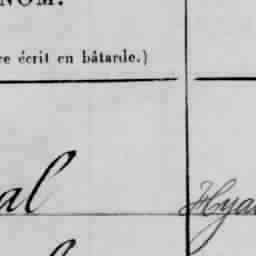 NOM.
re écrit en bâtarde.)
al Hya